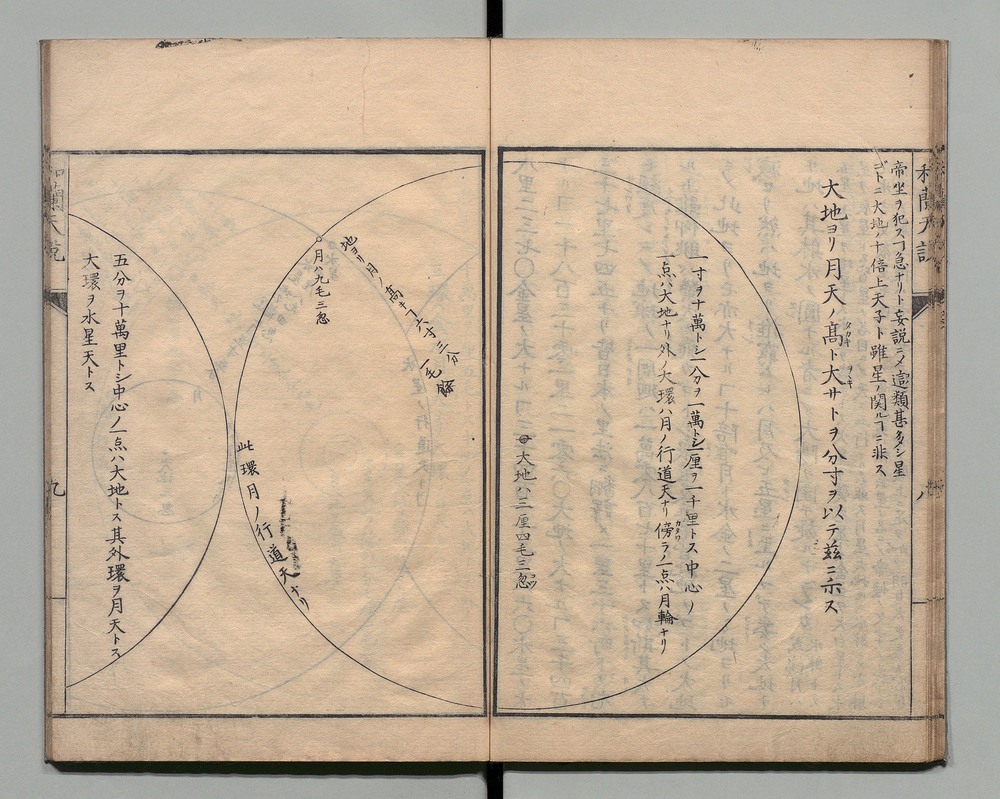 帝坐ヲ犯スヿ急ナリト妄説ニメ這類甚多シ星
ゴトニ大地ノ十倍上天子ト雖星ノ関ルヿニ非ス
大地ヨリ月天ノ髙ト大サトヲ分寸ヲ以テ茲ニ示ス
タカキ
ヲヽキ
一寸ヲ十萬トシ一分ヲ一萬トシ一厘ヲ一千里トス中心ノ
一点ハ大地ナリ外ノ大環ハ月ノ行道天ナリ傍ラノ一点ハ月輪ナリ
カタワ
大地ハ三厘四毛三忽
和蘭天説
八
地ヨリ月ノ髙キヿ六寸三分
一毛餘
月ハ九毛三忽
此環月ノ行道天ナリ
五分ヲ十萬里トシ中心ノ一点ハ大地トス其外環ヲ月天トス
大環ヲ水星天トス
和蘭天説
九